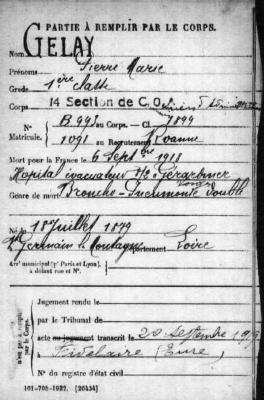 PARTIE À REMPLIR PAR LE CORPS.
Nom GELAY
Prénoms Pierre Marie
Grade 1ère classe
Corps 14 Section de C.O.
N° B 993 au Corps. — Cl. 1899
Matricule. 1091 au Recrutement Roanne
Mort pour la France le 6 Septbre 1918
Hopital évacuation Gérardmer
Genre de mort Broncho-Pneumonie double
Né le 18 Juillet 1879
St Germain la Montagne Département Loire
Arrt municipal (pr Paris et Lyon),
à défaut rue et N°.
Jugement rendu le
par le Tribunal de
acte ou jugement transcrit le 20 Septembre 1919
(Eure)
N° du registre d'état civil
101-708-1922. [26434]